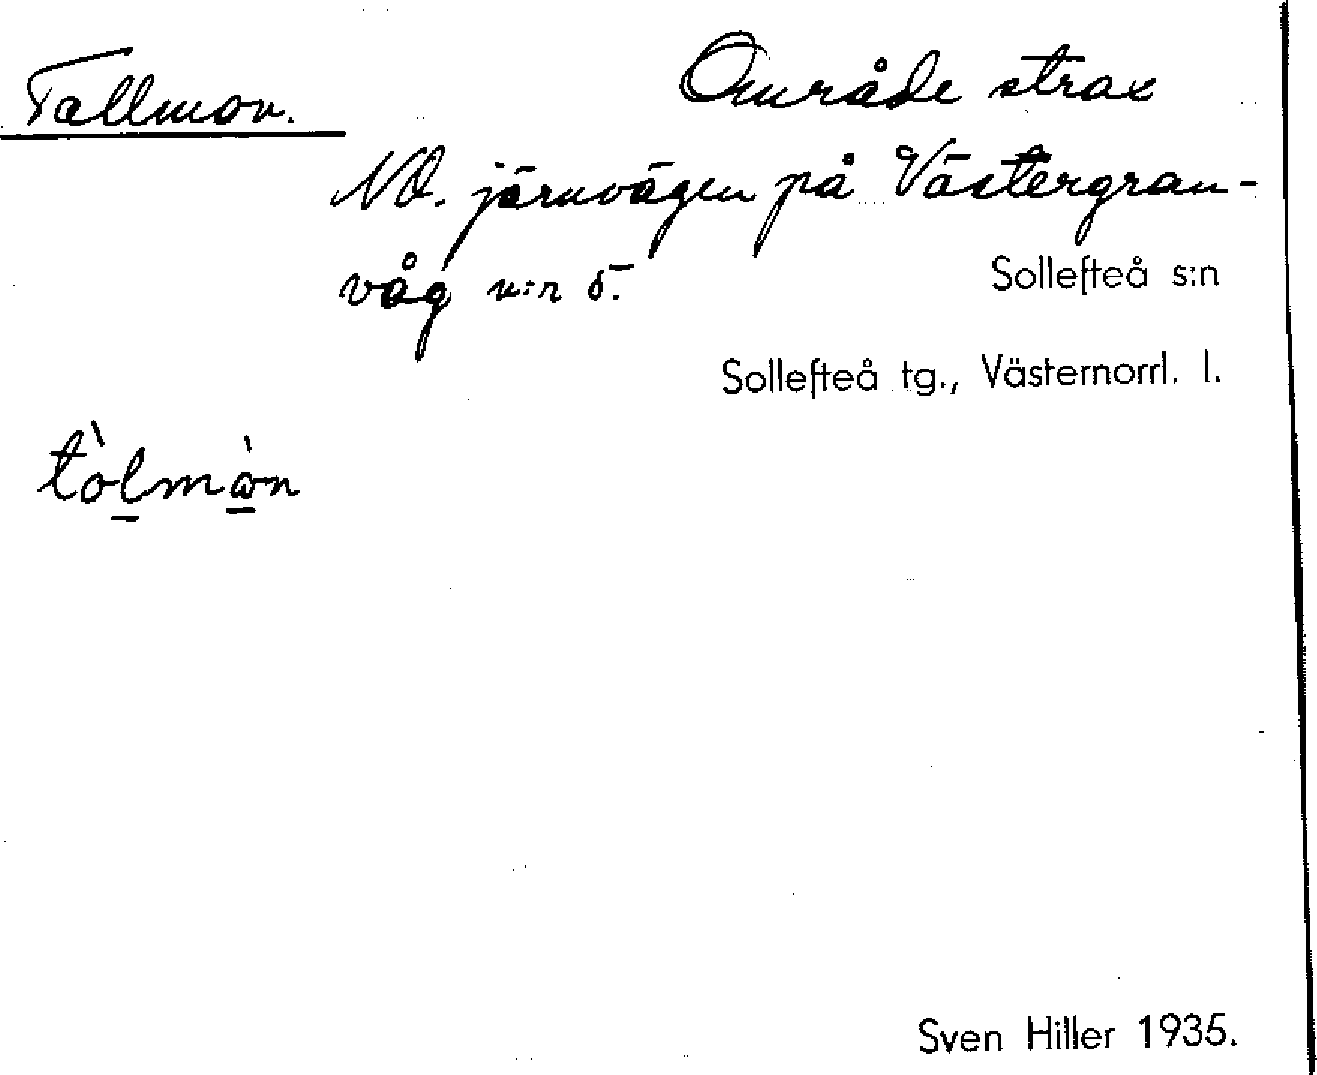 Tallmon.
Område strax
NO. järnvägen på Västergran-
våg n:r 5.
Sollefteå s:n
Sollefteå tg., Västernorrl. l.
tòlmòn
Sven Hiller 1935.